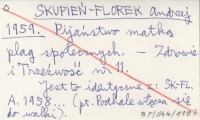 SKUPIEŃ-FLOREK Andrzej
1959. Pijaństwo matką
plag społecznych. - Zdrowie
i Trzeźwość nr 11.
Jest to identyczne z: SK-FL.
A. 1958... (pt. Podhale włącza się
do walki).